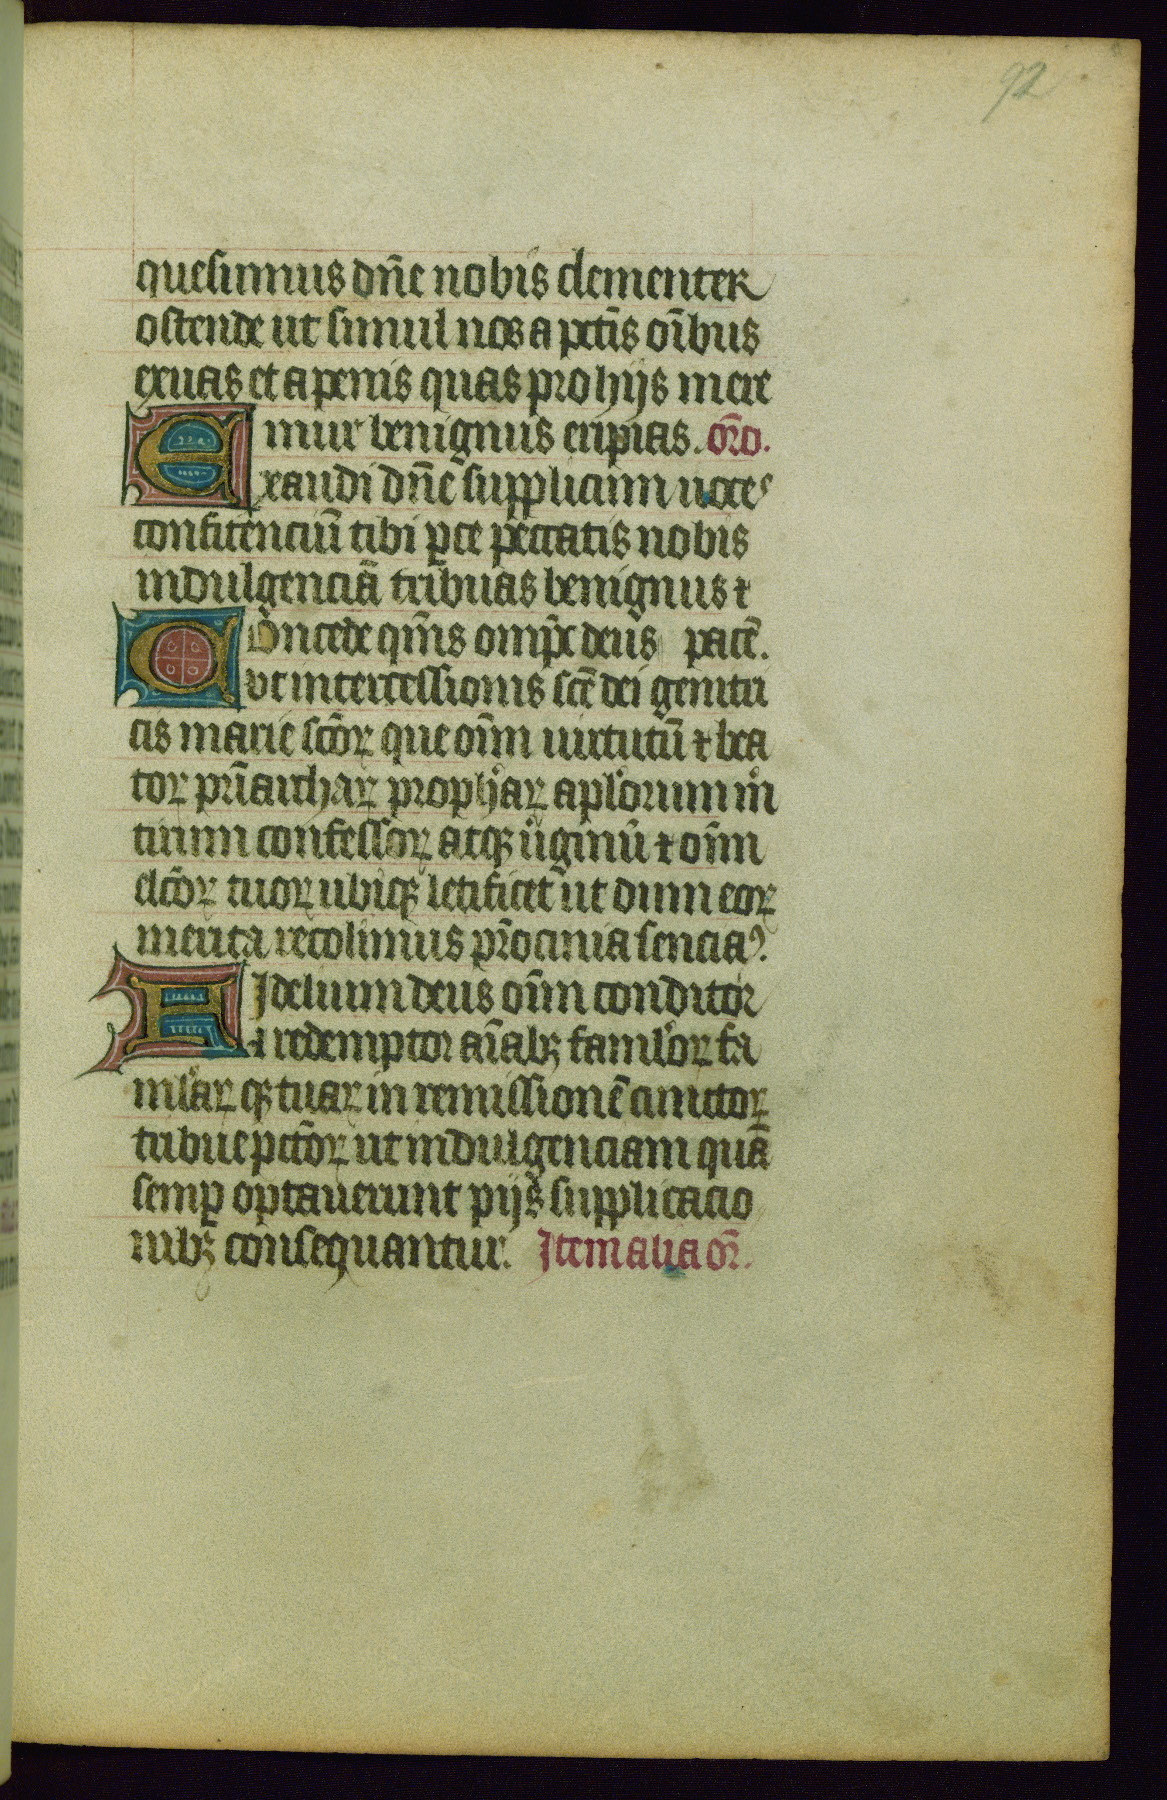 92
quesumus dn̄e nobis clementer
ostende ut simul nos a pctīs oībus
exuas et a penis quas pro hijs mere
mur benignus eripias. or̄o.
Exaudi dn̄e supplicum uoces
confitenciū tibi ꝑce peccatis nobis
indulgenciā tribuas benignus ⁊
Concede qm̄s omp̄s deus pacē.
vt intercessionis scē dei genitri
cis marie scōꝝ que oīm uirtutū ⁊ bea
toꝝ pr̄iarchaꝝ prophaꝝ aplorum m̄
tirum confessoꝝ atqꝫ uiginū ⁊ oīm
elcōꝝ tuoꝝ ubiqꝫ letificet ut dum eoꝝ
merita recolimus pr̄ocinia senciaꝰ.
Fidelium deus oīm conditor
⁊ redemptor aīabꝫ famuloꝝ fa
mulaꝝ qꝫ tuaꝝ in remissionē cunctoꝝ
tribue pctōꝝ ut indulgenciam quā
semꝑ optauerunt pijs supplicacio
nibꝫ consequantur. Item alia or̄.